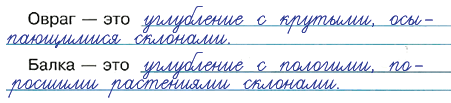 Овраг — это углубление с крутыми, осы-
пающимися склонами.
Балка — это углубление с пологими, по-
росшими растениями склонами.